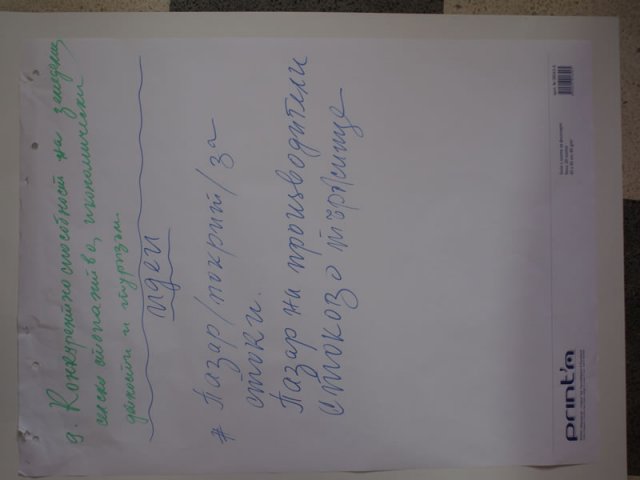 9. Конкурентноспособност на земеделц
селско стопанство, икономически
дейности и туризъм.
идеи
* Пазар /покрит/ за
стоки.
Пазар на производители
стоково тържище
print'm